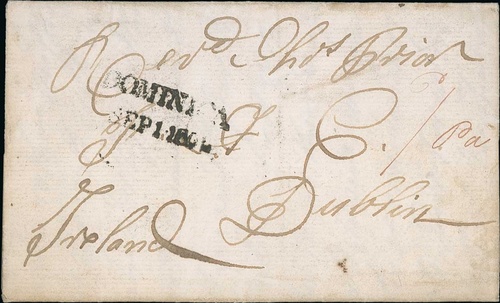 Revd. Thos. Prior
DOMINICA
F T C
Dublin
Ireland